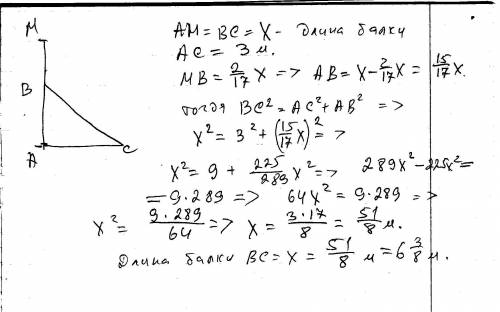 M
B
A
C
AM = BC = X - длина балки
AC = 3 м.
MB = 2/17 X => AB = X - 2/17 X = 15/17 X.
тогда BC² = AC² + AB² =>
X² = 3² + (15/17 X)² =>
X² = 9 + 225/289 X² => 289X² - 225X² =
= 9·289 => 64X² = 9·289 =>
X² = 9·289/64 => X = 3·17/8 = 51/8 м.
Длина балки BC = X = 51/8 м = 6 3/8 м.